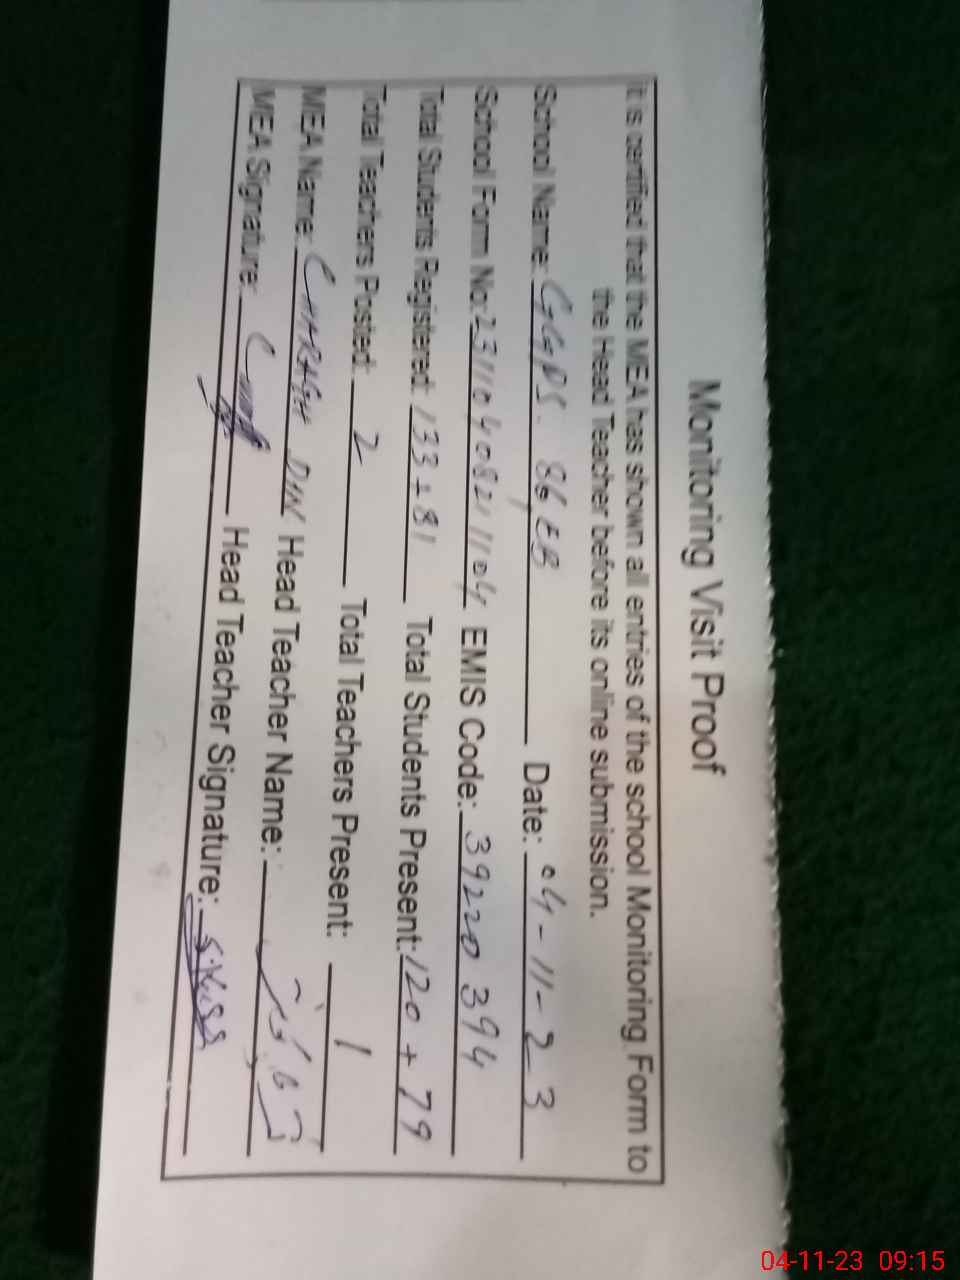 Monitoring Visit Proof
It is certified that the MEA has shown all entries of the school Monitoring Form to
the Head Teacher before its online submission.
School Name: GGPS. 86/EB Date: 04-11-23
School Form No: 2311040821104 EMIS Code: 39220394
Total Students Registered: 133+81 Total Students Present: 120+79
Total Teachers Posted: 2 Total Teachers Present: 1
MEA Name: CHARAGH DIN Head Teacher Name:
MEA Signature: Head Teacher Signature:
04-11-23 09:15